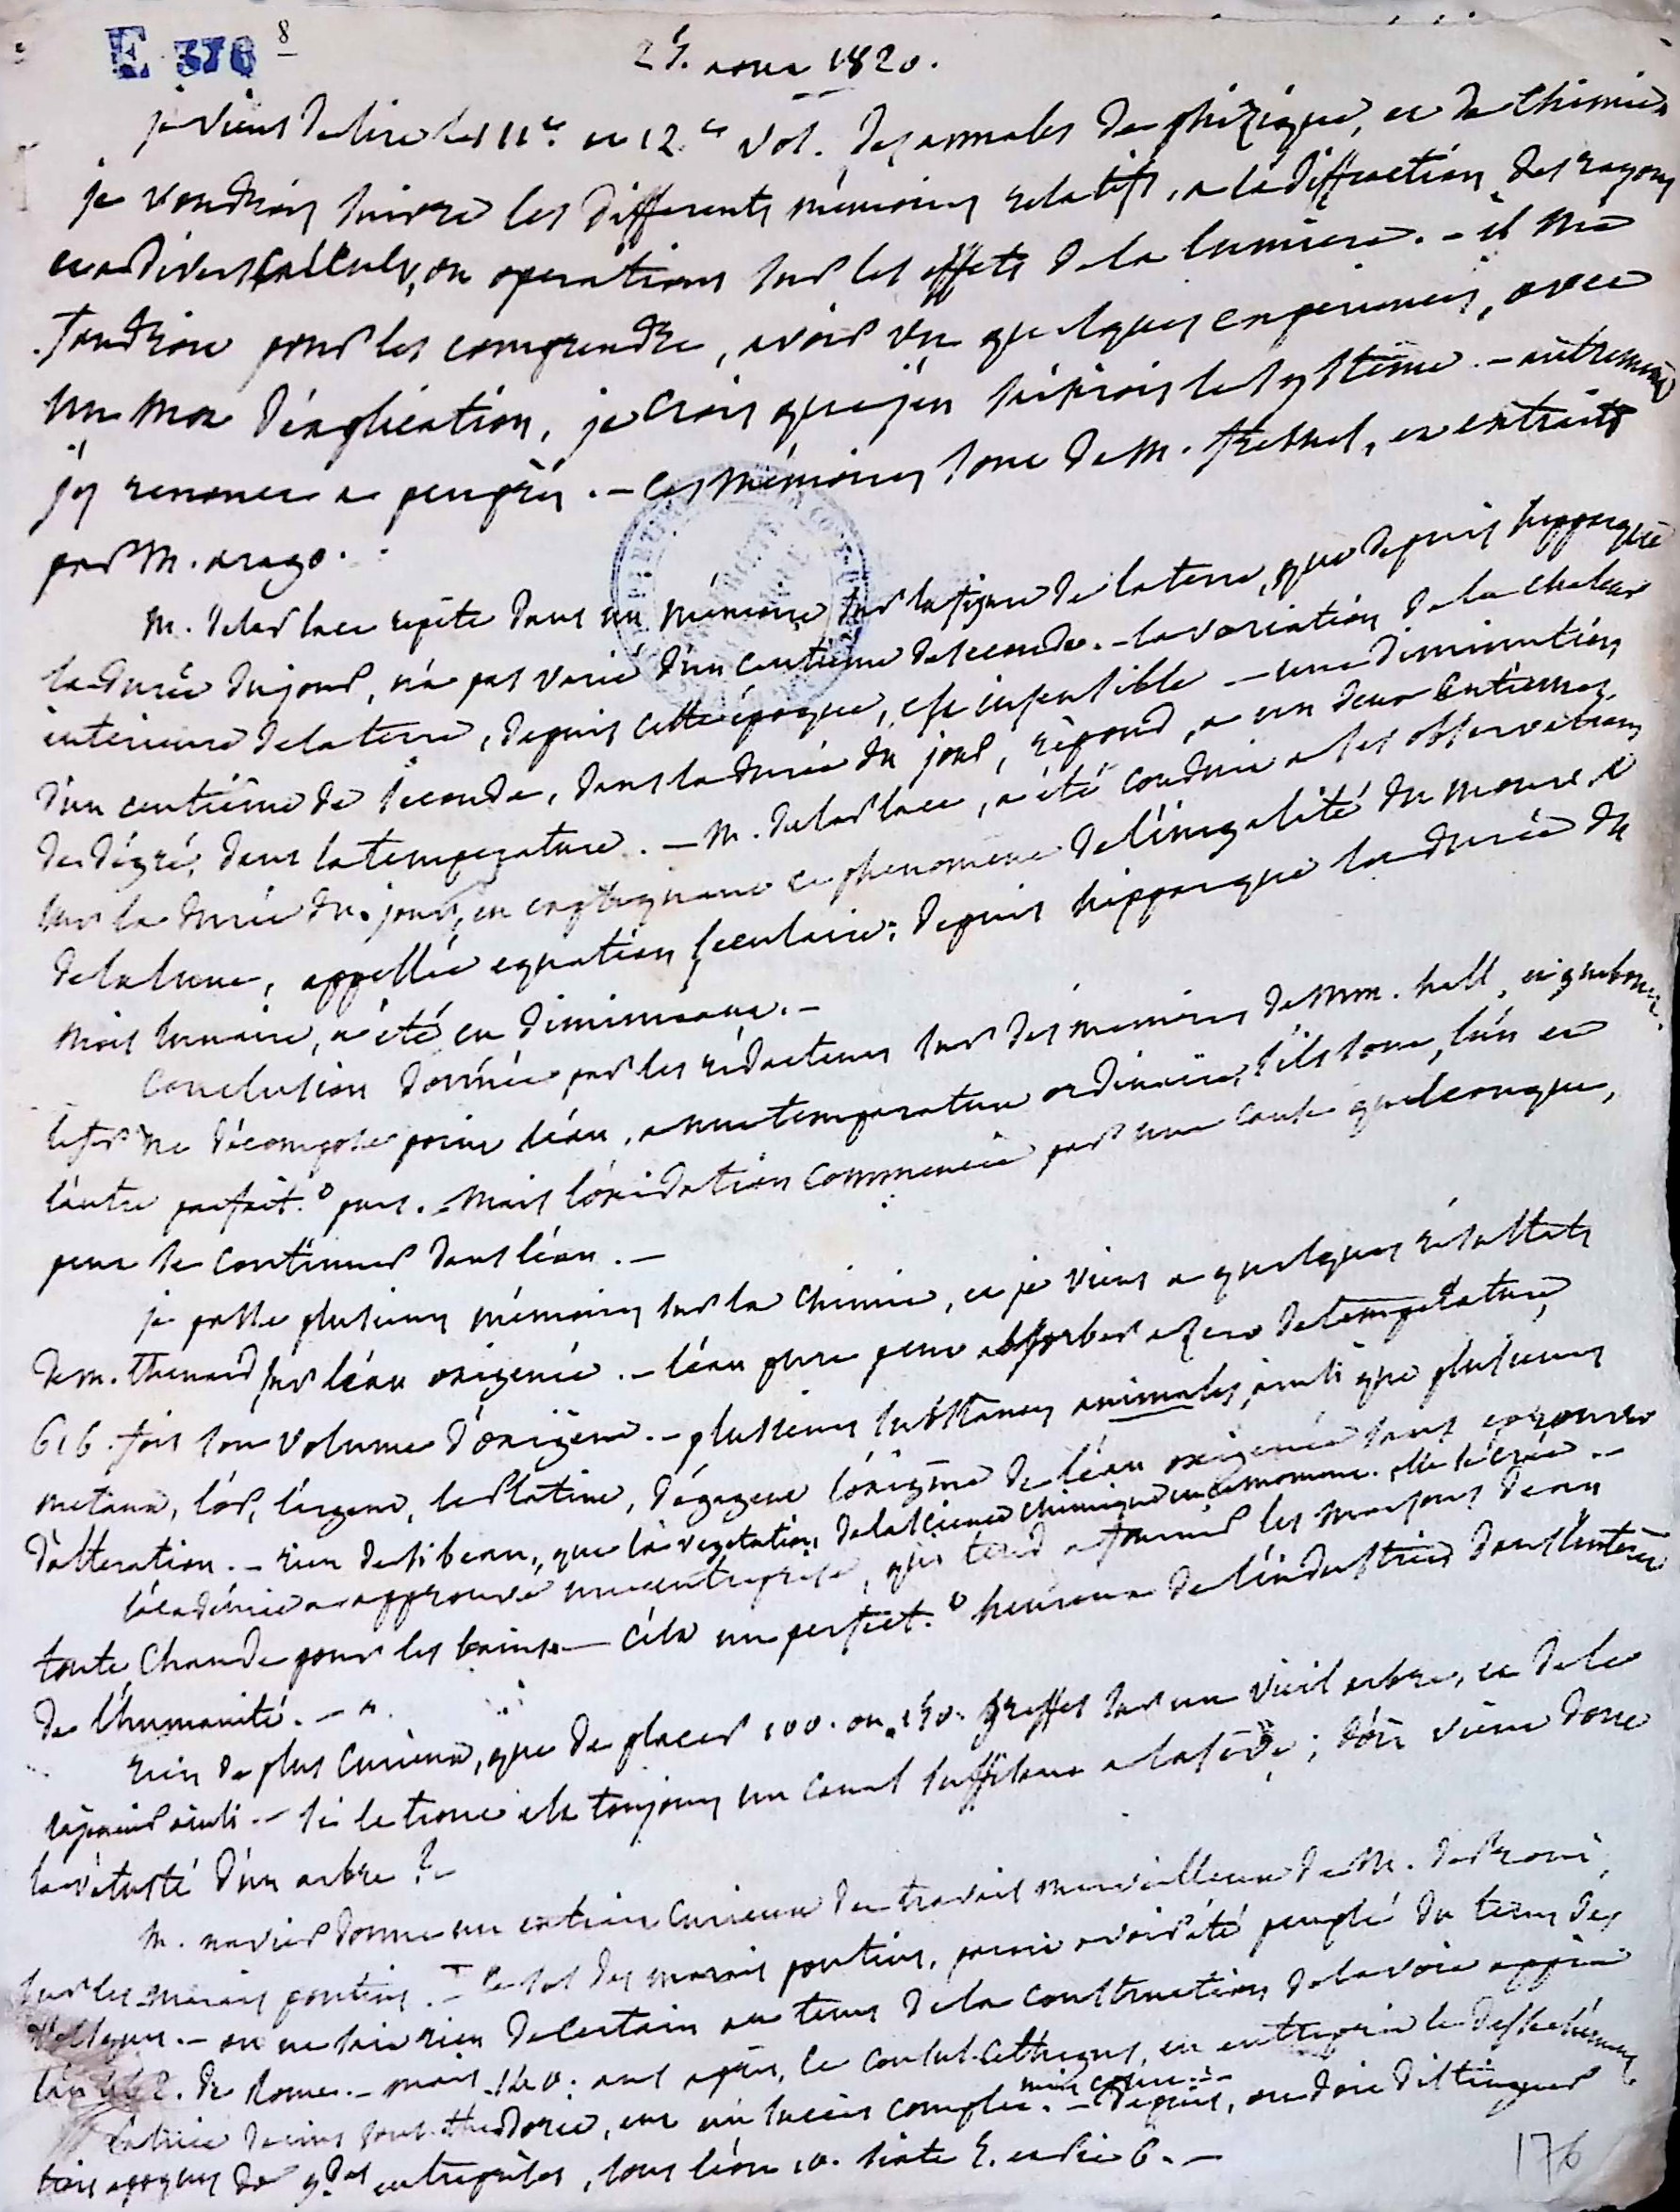 E 378 8
aout 1820.
je viens de lire les 11e. et 12.e vol. des annales de phizique, et de chimie
je voudrois suivre les differents mémoires relatifs, a la diffraction des rayons
et a divers calculs, ou operations sur les effets de la lumiere. - il me
faudroit pour les comprendre, avoir vu quelques experiences, avec
un mot d'explication, je crois que j'en saisirois le systême. - autrement
j'y renonce a peu près. - ces mémoires sont de M. fresnel, et extraits
par M. arago.
M. de la place repète dans un mémoire sur la figure de la terre, que depuis hipparque
la durée du jour, n'a pas varié d'un centieme de seconde. - la variation de la chaleur
interieure de la terre, depuis cette époque, est insensible - une diminution
d'un centième de seconde, dans la durée du jour, repond, a un deux centiemes
de dégré, dans la temperature. - M. de la place, a été conduit a ses observations
sur la durée du jour, en expliquant ce phenomene de l'inegalité du mouv.t
de la lune, appellée equation seculaire; depuis hipparque la durée du
mois lunaire, a été en diminuant. -
Conclusion donnée par les rédacteurs sur des memoires de MM. hall, et guibourt.
le fer ne décompose point l'eau, a une temperature ordinaire, s'ils sont, l'un et
l'autre parfait.t purs. - mais l'oxidation commencée par une cause quelconque,
peut se continuer dans l'eau. -
je passe plusieurs mémoires sur la chimie, et je viens a quelques résultats
de m. thenard sur l'eau oxigenée. - l'eau pure peut absorber a zero de temperature,
616. fois son volume d'oxigène. - plusieurs substances animales, ainsi que plusieurs
metaux, l'or, l'argent, le platine, dégagent l'oxigène de l'eau oxigenée sans eprouver
d'alteration. - rien de si beau, que la vegetation de la science chimique en ce moment. elle se crée. -
l'académie a approuvé une entreprise, qui tend a fournir les maisons d'eau
toute chaude pour les bains. - c'est un perfect.t heureux de l'industrie dans l'interêt
de l'humanité. -
rien de plus curieux, que de placer 100. ou 150. greffes sur un vieil arbre, et de le
rajeunir ainsi. - si le tronc est toujours un canal suffisant a la sève; d'où vient donc
la vétusté d'un arbre? -
M. navier donne un extrait curieux du travail merveilleux de M. de Proni,
sur les marais pontins. - le sol des marais pontins, paroit avoir été peuplé du tems des
Volsques. - on ne sait rien de certain au tems de la construction de la voie appia
l'an 442. de Rome. - mais 140. ans après, le consul Cethegus, en entreprit le dessechement
Decius sous theodoric, eut un succès complet. - depuis, on doit distinguer
trois epoques de g.des entreprises, sous léon 10. sixte 5. et Pie 6. -
176